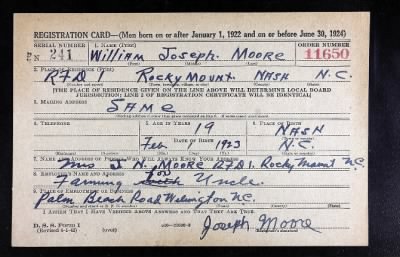 REGISTRATION CARD—(Men born on or after January 1, 1922 and on or before June 30, 1924)
SERIAL NUMBER 1. NAME (Print) ORDER NUMBER
N 241 William Joseph Moore 11650
2. PLACE OF RESIDENCE (Print)
RFD Rocky Mount. NASH N.C.
[THE PLACE OF RESIDENCE GIVEN ON THE LINE ABOVE WILL DETERMINE LOCAL BOARD
JURISDICTION; LINE 2 OF REGISTRATION CERTIFICATE WILL BE IDENTICAL]
3. MAILING ADDRESS
SAME
4. TELEPHONE 5. AGE IN YEARS 6. PLACE OF BIRTH
19 NASH
DATE OF BIRTH
Feb. 1 1923 N.C.
7. NAME AND ADDRESS OF PERSON WHO WILL ALWAYS KNOW YOUR ADDRESS
Mrs J. N. MOORE RFD 1. Rocky Mount N.C.
8. EMPLOYER'S NAME AND ADDRESS
Farming Uncle.
9. PLACE OF EMPLOYMENT OR BUSINESS
Palm Beach Road N.C.
I AFFIRM THAT I HAVE VERIFIED ABOVE ANSWERS AND THAT THEY ARE TRUE.
D. S. S. FORM 1
(Revised 6-1-42)
Joseph Moore